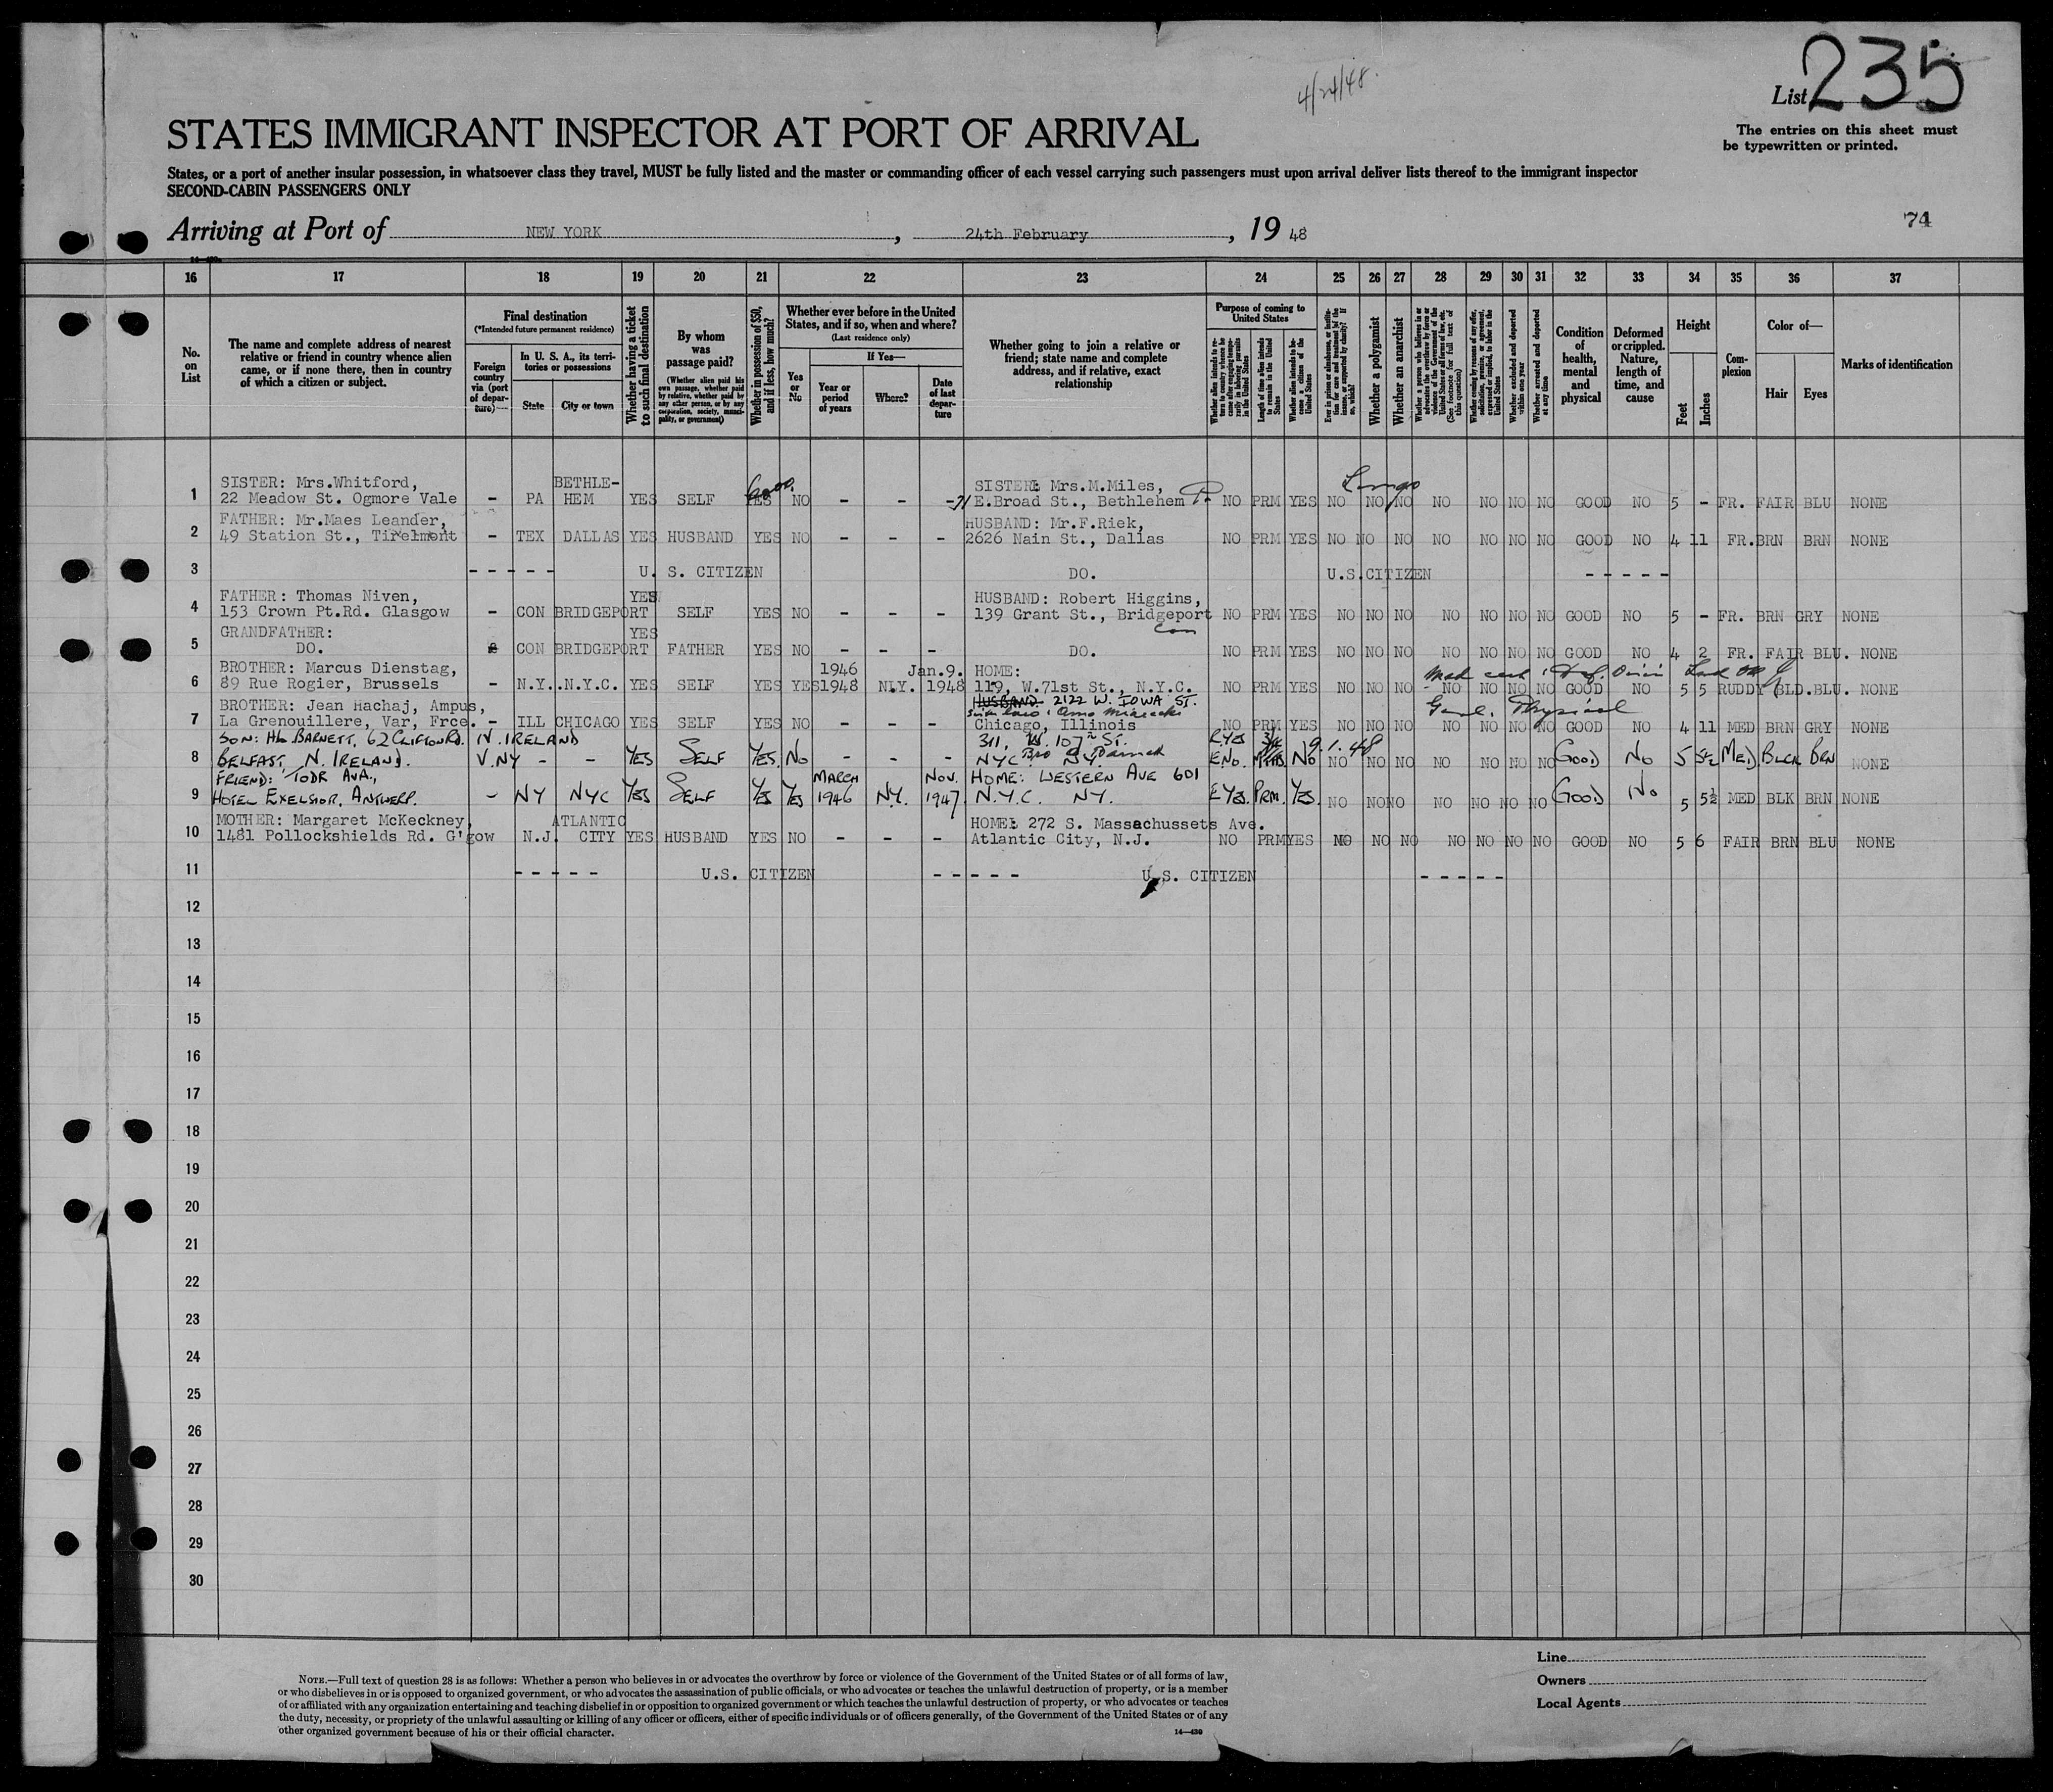 4/24/48.
List 235
STATES IMMIGRANT INSPECTOR AT PORT OF ARRIVAL
The entries on this sheet must
be typewritten or printed.
States, or a port of another insular possession, in whatsoever class they travel, MUST be fully listed and the master or commanding officer of each vessel carrying such passengers must upon arrival deliver lists thereof to the immigrant inspector
SECOND-CABIN PASSENGERS ONLY
Arriving at Port of NEW YORK, 24th February, 19 48
74
16 17 18 19 20 21 22 23 24 25 26 27 28 29 30 31 32 33 34 35 36 37
No. on List
The name and complete address of nearest
relative or friend in country whence alien
came, or if none there, then in country
of which a citizen or subject.
Final destination
(*Intended future permanent residence)
Foreign country via (port of departure)—
In U. S. A., its territories or possessions
State
City or town
Whether having a ticket to such final destination
By whom was passage paid?
(Whether alien paid his own passage, whether paid by relative, whether paid by any other person, or by any corporation, society, municipality, or government)
Whether in possession of $50, and if less, how much?
Whether ever before in the United States, and if so, when and where?
(Last residence only)
Yes or No
If Yes—
Year or period of years
Where?
Date of last departure
Whether going to join a relative or
friend; state name and complete
address, and if relative, exact
relationship
Purpose of coming to United States
Whether alien intends to return to country whence he came after engaging temporarily in laboring pursuits in the United States
Length of time alien intends to remain in the United States
Whether alien intends to become a citizen of the United States
Ever in prison or almshouse, or institution for care and treatment of the insane, or supported by charity? If so, which?
Whether a polygamist
Whether an anarchist
Whether a person who believes in or advocates the overthrow by force or violence of the Government of the United States or all forms of law, etc. (See footnote for full text of this question)
Whether coming by reason of any offer, solicitation, promise, or agreement, expressed or implied, to labor in the United States
Whether excluded and deported within one year
Whether arrested and deported at any time
Condition of health, mental and physical
Deformed or crippled. Nature, length of time, and cause
Height
Feet
Inches
Complexion
Color of—
Hair
Eyes
Marks of identification
SISTER: Mrs.Whitford, BETHLE- SISTER: Mrs.M.Miles,
1 22 Meadow St. Ogmore Vale - PA HEM YES SELF YES NO - - - 71 E.Broad St., Bethlehem NO PRM YES NO NO NO NO NO NO NO GOOD NO 5 - FR. FAIR BLU NONE
FATHER: Mr.Maes Leander, HUSBAND: Mr.F.Riek,
2 49 Station St., Tirelmont - TEX DALLAS YES HUSBAND YES NO - - - 2626 Nain St., Dallas NO PRM YES NO NO NO NO NO NO NO GOOD NO 4 11 FR. BRN BRN NONE
3 ----- U. S. CITIZEN DO. U.S.CITIZEN -----
FATHER: Thomas Niven, YES HUSBAND: Robert Higgins,
4 153 Crown Pt.Rd. Glasgow - CON BRIDGEPORT SELF YES NO - - - 139 Grant St., Bridgeport NO PRM YES NO NO NO NO NO NO NO GOOD NO 5 - FR. BRN GRY NONE
GRANDFATHER: YES Con
5 DO. CON BRIDGEPORT FATHER YES NO - - - DO. NO PRM YES NO NO NO NO NO NO NO GOOD NO 4 2 FR. FAIR BLU. NONE
BROTHER: Marcus Dienstag, 1946 Jan.9. HOME:
6 89 Rue Rogier, Brussels - N.Y. N.Y.C. YES SELF YES YES 1948 N.Y. 1948 119, W.71st St., N.Y.C. NO PRM YES NO NO NO NO NO NO NO GOOD NO 5 5 RUDDY BLD. BLU. NONE
BROTHER: Jean Hachaj, Ampus, HUSBAND 2122 W. IOWA ST.
7 La Grenouillere, Var, Frce. - ILL CHICAGO YES SELF YES NO - - - Chicago, Illinois NO PRM YES NO NO NO NO NO NO NO GOOD NO 4 11 MED BRN GRY NONE
SON: HL BARNETT, 62 CLIFTON RD. N. IRELAND 311, W. 107th ST. 9.1.48
8 BELFAST, N. IRELAND. V.NY - - YES SELF YES. NO - - - NYC N.Y. NO. NO NO NO NO NO NO NO NO GOOD NO 5 5½ MED BLCK BRN NONE
FRIEND: TODR AVA., MARCH NOV. HOME: WESTERN AVE 601
9 HOTEL EXELSIOR, ANTWERP. - NY NYC YES SELF YES YES 1946 N.Y. 1947 N.Y.C. NY. YES. PRM. YES. NO NO NO NO NO NO NO GOOD NO 5 5½ MED BLK BRN NONE
MOTHER: Margaret McKeckney, ATLANTIC HOME: 272 S. Massachussets Ave.
10 1481 Pollockshields Rd. G'gow N.J. CITY YES HUSBAND YES NO - - - Atlantic City, N.J. NO PRM YES NO NO NO NO NO NO NO GOOD NO 5 6 FAIR BRN BLU NONE
11 ----- U.S. CITIZEN ----- U.S. CITIZEN -----
12
13
14
15
16
17
18
19
20
21
22
23
24
25
26
27
28
29
30
NOTE.—Full text of question 28 is as follows: Whether a person who believes in or advocates the overthrow by force or violence of the Government of the United States or of all forms of law,
or who disbelieves in or is opposed to organized government, or who advocates the assassination of public officials, or who advocates or teaches the unlawful destruction of property, or is a member
of or affiliated with any organization entertaining and teaching disbelief in or opposition to organized government or which teaches the unlawful destruction of property, or who advocates or teaches
the duty, necessity, or propriety of the unlawful assaulting or killing of any officer or officers, either of specific individuals or of officers generally, of the Government of the United States or of any
other organized government because of his or their official character.
14—430
Line
Owners
Local Agents